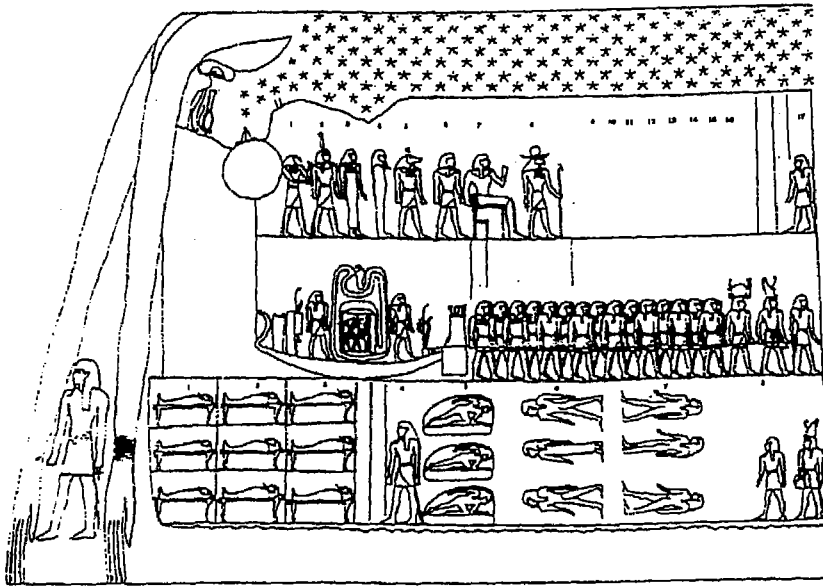 1 2 3 4 5 6 7 8 9 10 11 12 13 14 15 16 17
1 2 3 4 5 6 7 8